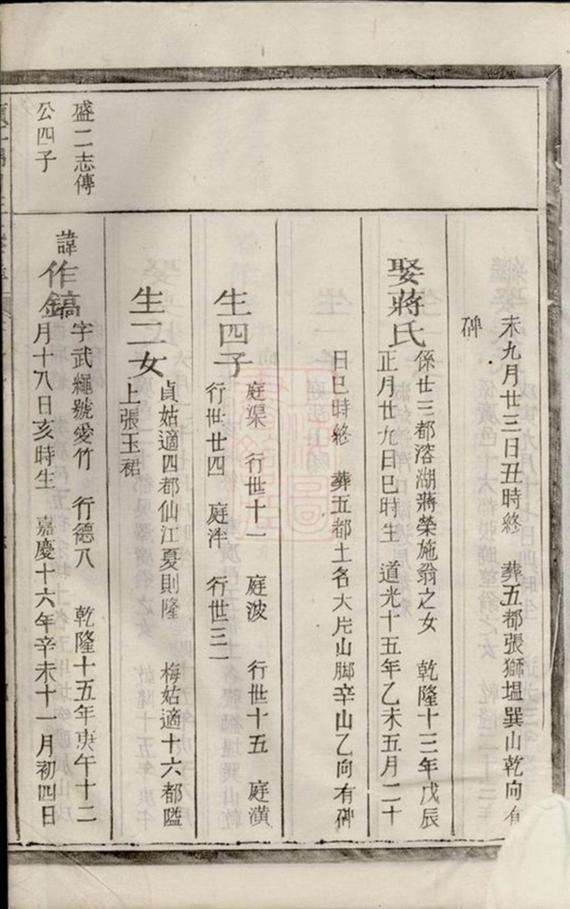 未九月廿三日丑時終　葬五都張獅塭巽山乾向有
碑
娶蔣氏
係世三都溶湖蔣榮施翁之女　乾隆十三年戊辰
正月廿九日巳時生　道光十五年乙未五月二十
日巳時終　葬五都土名大片山脚辛山乙向有碑
生四子
庭渠　行世十一　庭波　行世十五　庭潢
行世廿四　庭泮　行世三二
生二女
貞姑適四都仙江夏則隆　梅姑適十六都
上張玉裙
盛二志傳
公四子
諱作鎬
字武繩號愛竹　行德八　乾隆十五年庚午十二
月十八日亥時生　嘉慶十六年辛未十一月初四日